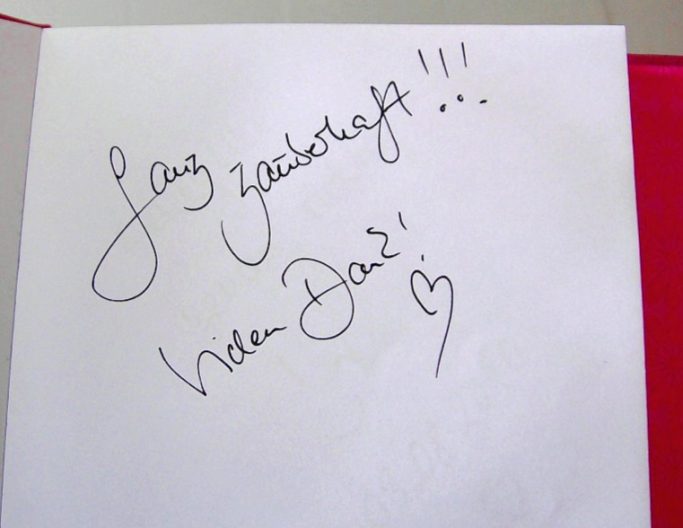 Ganz
zauberhaft!!!
Vielen Dank!